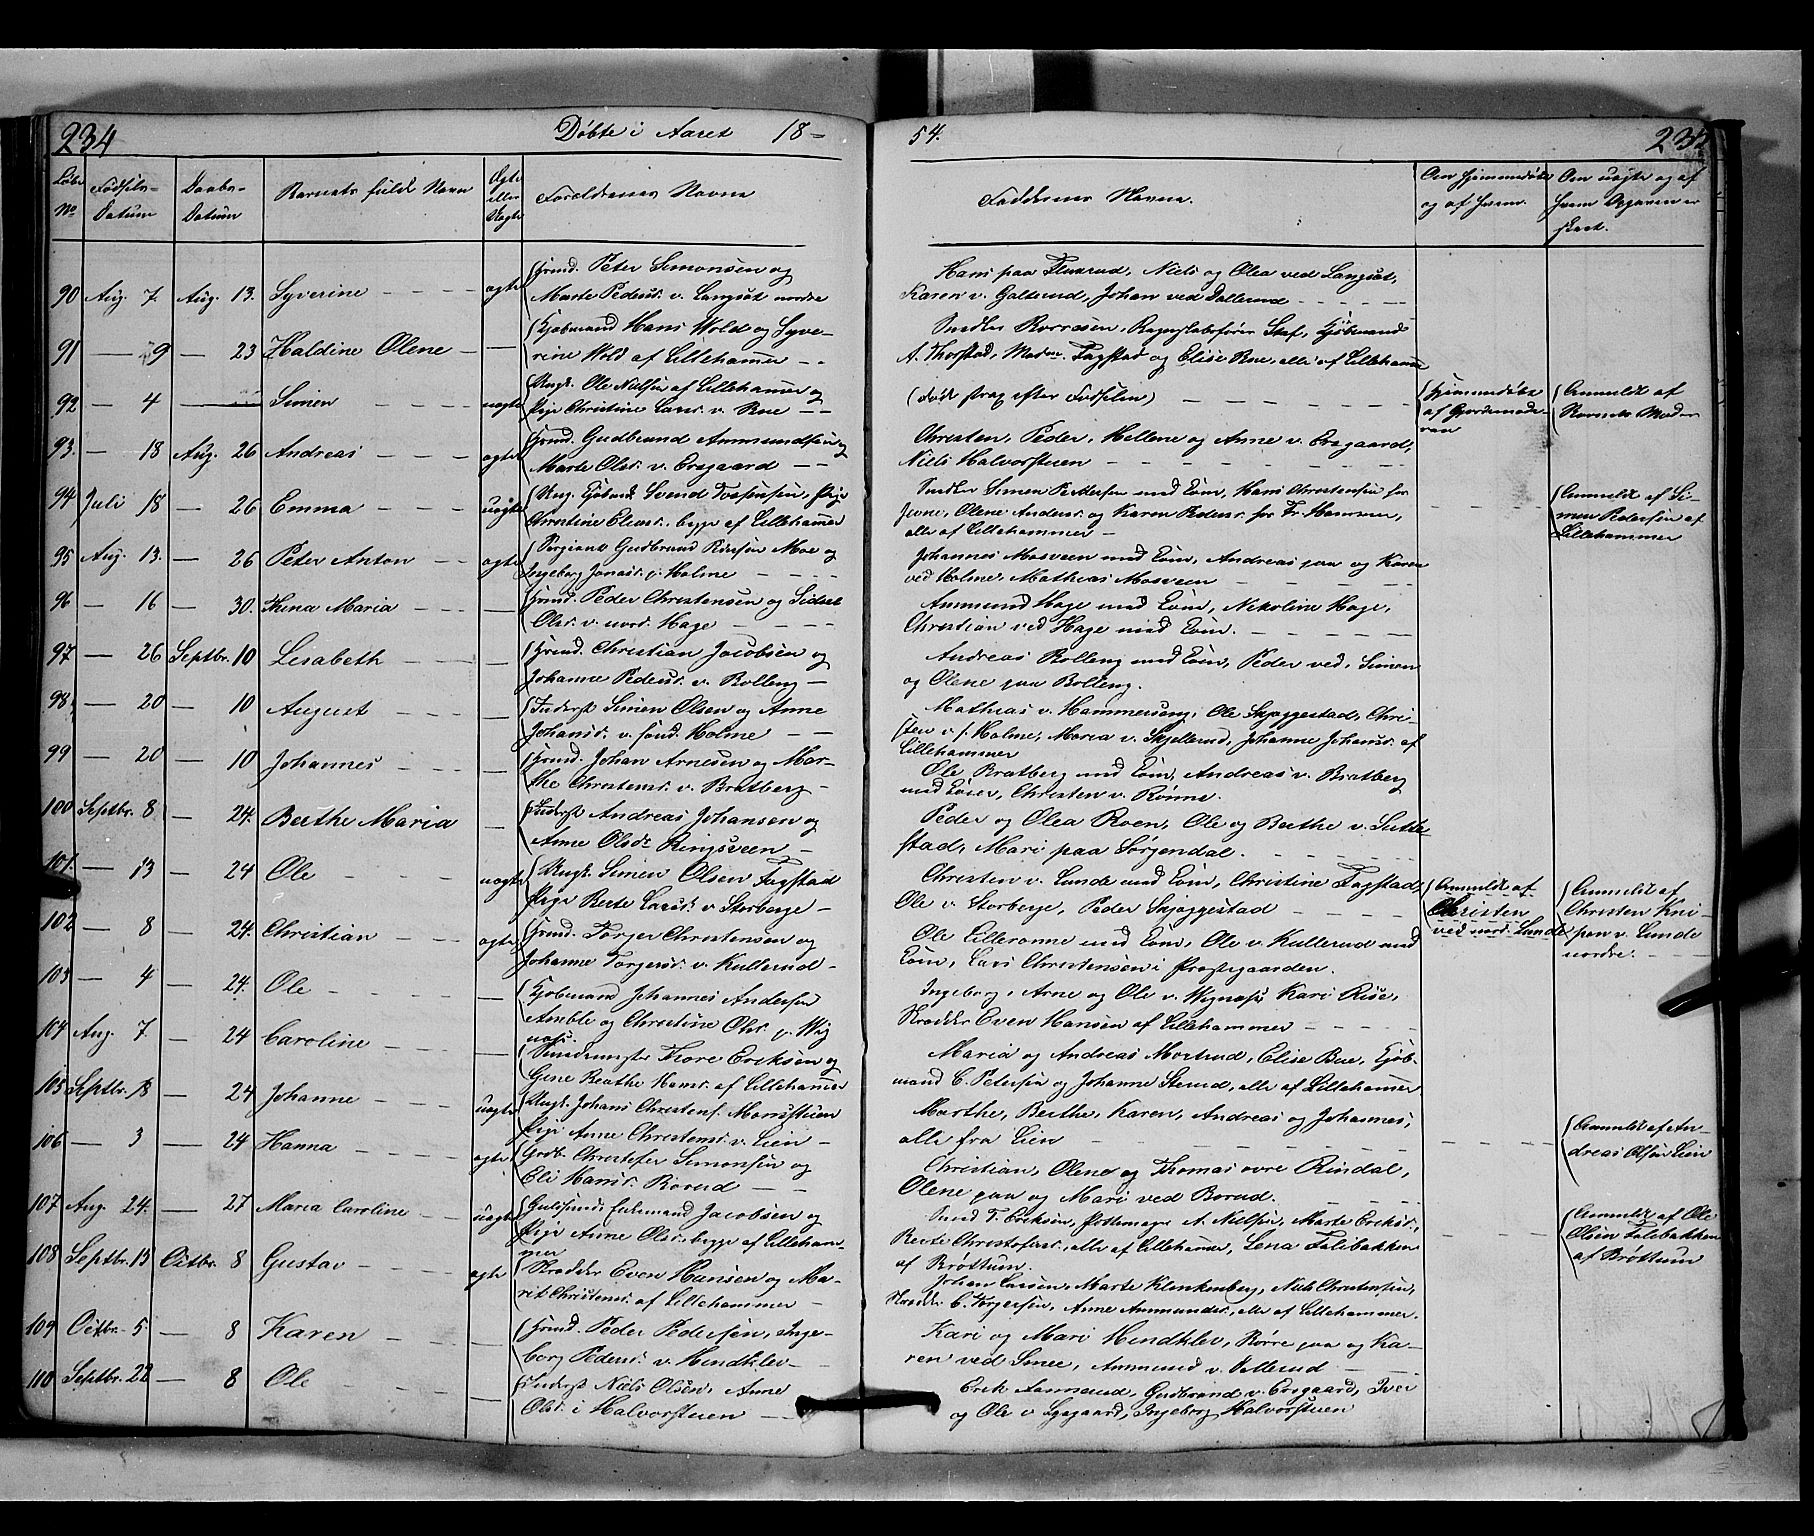 234
Døbte i Aaret 18-
54.
235
Løbe No
Fødsels-Datum
Daabs-Datum
Barnets fulde Navn
Ægte eller Uægte
Forældrenes Navne
Faddernes Navne.
Om hjemmedøbt og af hvem.
Om uægte og af hvem Opgaven er skeet.
90 Aug. 7. Aug. 13. Syverine - - - ægte Grmd. Peter Simonsen og
Marte Pedersd. v. Langsæt nordre
Hans paa Fluerud, Niels og Olea ved Langsæt,
Karen v. Galterud, Johan ved Dallerud
91 — 9 — 23 Haldine Olene - — Kjøbmand Hans Wold og Syve-
rine Wold af Lillehammer - -
Snedker Borresen, Regnskabsfører Skaf, Kjøbmand
A. Thorstad, Madm. Fagstad og Elise Bue, alle af Lillehammer
92 — 4 — Simen - - - uægte Ungk. Ole Nielsen af Lillehammer og
Pige Christine Larsd. v. Bue - -
(Død strax efter Fødselen)
Hjemmedøbt
af Gjordemode-
ren
Anmeldt af
Barnets Moder
93. — 18 Aug. 26 Andreas - - - ægte Grmd. Gudbrand Ammundsen og
Marte Olsd. v. Ersgaard - -
Christen, Peder, Hellene og Anne v. Ersgaard,
Niels Halvorstuen
94 Juli 18 — 26 Emma - - - uægte Ung. Kjøbmd. Svend Tostensen, Pige
Christine Olensd., begge af Lillehammer
Snedker Simen Pettersen med Kone, Hans Christensen for
Jevne, Olene Andersd. og Karen Pedersd. for Fr. Hansen,
alle af Lillehammer -
Anmeldt af Si-
men Pedersen af
Lillehammer
95 Aug. 13. — 26 Peter Anton - - ægte Sergiant Gudbrand Moe og
Ingeborg Jonasd. v. Holme - - - -
Johannes Mosveen med Kone, Andreas paa og Karen
ved Holme, Mathias Mosveen
96 — 16 — 30. Thina Maria - - - — Grmd. Peder Christensen og Sidsel
Olsd. v. nord. Hage - - - -
Ammund Hage med Kone, Nikoline Hage,
Christian ved Hage med Kone.
97 — 26 Septbr. 10 Lisabeth - - - — Grmd. Christian Jacobsen og
Johanne Pedersd. v. Rolleng -
Andreas Rolleng med Kone, Peder ved, Simen
og Olene paa Bolleng.
98 — 20 — 10 August - - - — Inderst Simen Olsen og Anne
Johansd. v. sønd. Holme - -
Mathias v. Hammerseng, Ole Skjæggestad, Chri-
sten v. s. Holme, Maria v. Skjellerud, Johanne Johansd. af
Lillehammer
99 — 20 — 10 Johannes - - - — Grmd. Johan Arnesen og Mar-
the Christensd. v. Bratberg -
Ole Bratberg med Kone, Andreas v. Bratberg
med Kone, Christen v. Rønne.
100 Septbr. 8 — 24. Berthe Maria — Inderst Andreas Johansen og
Anne Olsdr. Ringsveen -
Peder og Olea Roen, Ole og Berthe v. Sutte-
stad, Mari paa Sørgendal.
101. — 13 — 24 Ole - - - uægte Ungk. Simen Olsen Fagstad
Pige Berte Larsd. v. Storberge -
Christen v. Lunde med Kone, Christine Fagstad,
Ole v. Storberge, Peder Skjæggestad
Anmeldt af
Christen
ved nord. Lunde
Anmeldt af
Christen Kni-
pen v. Lunde
nordre.
102 — 8 — 24. Christian - - - ægte Grmd. Torger Christensen og
Johanne Torgersd. v. Kullerud -
Ole Lilleronne med Kone, Ole v. Kullerud med
Kone, Lars Christensen i Præstegaarden.
103 — 4 — 24. Ole - - - — Kjøbmand Johannes Andersen
Amble og Christine Olsd. v. Wig-
næs.
Ingeborg, Arne og Ole v. Wignæss Kari Rise,
Skrædder Even Hansen af Lillehammer
104 Aug. 7. — 24 Caroline - - - — Smedemester Thore Eriksen og
Gine Beathe Hansd. af Lillehammer
Maria og Andreas Mostrud, Elise Bue, Kjøb-
mand C. Petersen og Johanne Sterud, alle af Lillehammer
105 Septbr. 13 — 24 Johanne - - - uægte Ungk. Johans Christens. Morrstuen
Pige Anne Christensd. v. Lien -
Marthe, Berthe, Karen, Andreas og Johannes,
alle fra Lien
Anmeldt af An-
dreas Olsen Lien
106 — 3 — 24 Hanna - - - ægte Grdb. Christofer Simonsen og
Eli Hansd. Borud - -
Christian, Olene og Thomas øvre Rindal,
Olene paa og Mari ved Borud.
107 Aug. 24. — 27 Maria Caroline - - uægte Guldsmed Ferdinand Jacobsen og
Pige Anne Olsd. begge af Lilleham-
mer
Smed T. Eriksen, Pottemager A. Nielsen, Marte Eriksd.,
Berte Christofersd., alle af Lillehammer, Lena Falibakken
af Brøttum.
Anmeldt af Ole
Olsen Falibakken
af Brøttum
108 Septbr. 13 Octbr. 8 Gustav - - - ægte Skrædder Even Hansen og Ma-
rit Christensd. af Lillehammer -
Johan Larsen, Marte Klenkenberg, Niels Christensen,
Skrædder C. Torgersen, Anne Ammundsd., alle af Lillehammer.
109 Octbr. 5 — 8 Karen - - — Grmd. Peder Pedersen, Inge-
borg Pedersd. v. Hindklev -
Kari og Mari Hindklev, Børre paa og Ka-
ren ved Smee, Ammund v. Dallerud
110 Septbr. 22 — 8 Ole - - - — Inderst Niels Olsen, Anne
Olsd. i Halvorstuen - -
Erik Aamerud, Gudbrand v. Ersgaard, Iver
og Ole v. Lysgaard, Ingeborg Halvorstuen